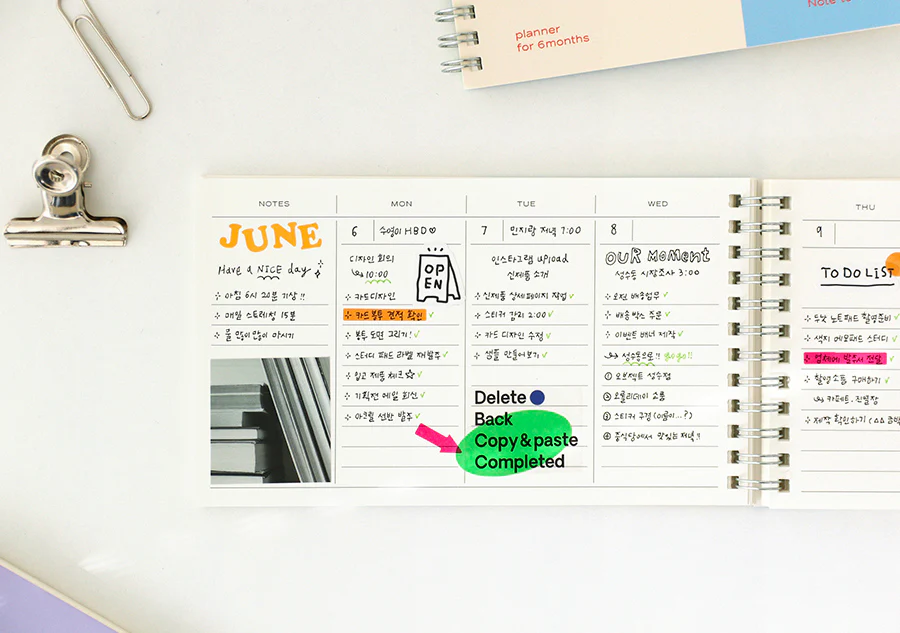 planner
for 6months
Note to
NOTES
JUNE
Have a NICE day
아침 6시 20분 기상!!
매일 스트레칭 15분
물 많이많이 마시기
MON
6
수영이 HBD♡
디자인 회의
10:00
OPEN
카드디자인
카드봉투 견적 확인
봉투 도면 그리기!
스터디 패드 라벨 재발주
입고 제품 체크☆
기획전 메일 회신
아크릴 선반 발주
TUE
7
민지랑 저녁 7:00
인스타그램 upload
신제품 소개
신제품 상세페이지 작업
스티커 감리 2:00
카드 디자인 수정
샘플 만들어보기
Delete
Back
Copy & paste
Completed
WED
8
OUR MOMENT
성수동 시장조사 3:00
오전 배송업무
배송박스 주문
이벤트 배너 제작
성수동으로!! gogo!!
① 오브젝트 성수점
② 오롤리데이 쇼룸
③ 스티커 구경 (이름이…?)
④ 중식당에서 맛있는 저녁!!
THU
9
TO DO LIST
도낫 노트패드 촬영준비
색지 메모패드 스터디
업체에 발주서 전달
촬영소품 구매하기
카페트, 진열장
제작 확인하기